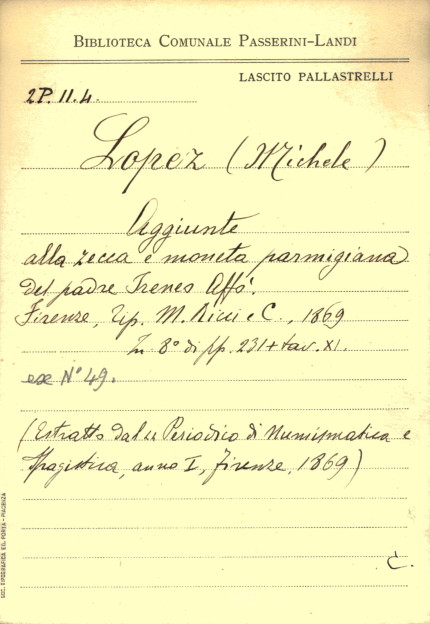 BIBLIOTECA COMUNALE PASSERINI-LANDI
LASCITO PALLASTRELLI
2P.II.4.
Lopez (Michele)
Aggiunte
alla zecca e moneta parmigiana
del padre Ireneo Affò.
Firenze, Tip. M. Ricci e C., 1869
In 8° di pp. 231 + tav. XI.
ex N° 49.
(Estratto dal Periodico di Numismatica e
Sfragistica, anno I, Firenze, 1869)
C.
SOC. TIPOGRAFICA ED. PORTA - PIACENZA